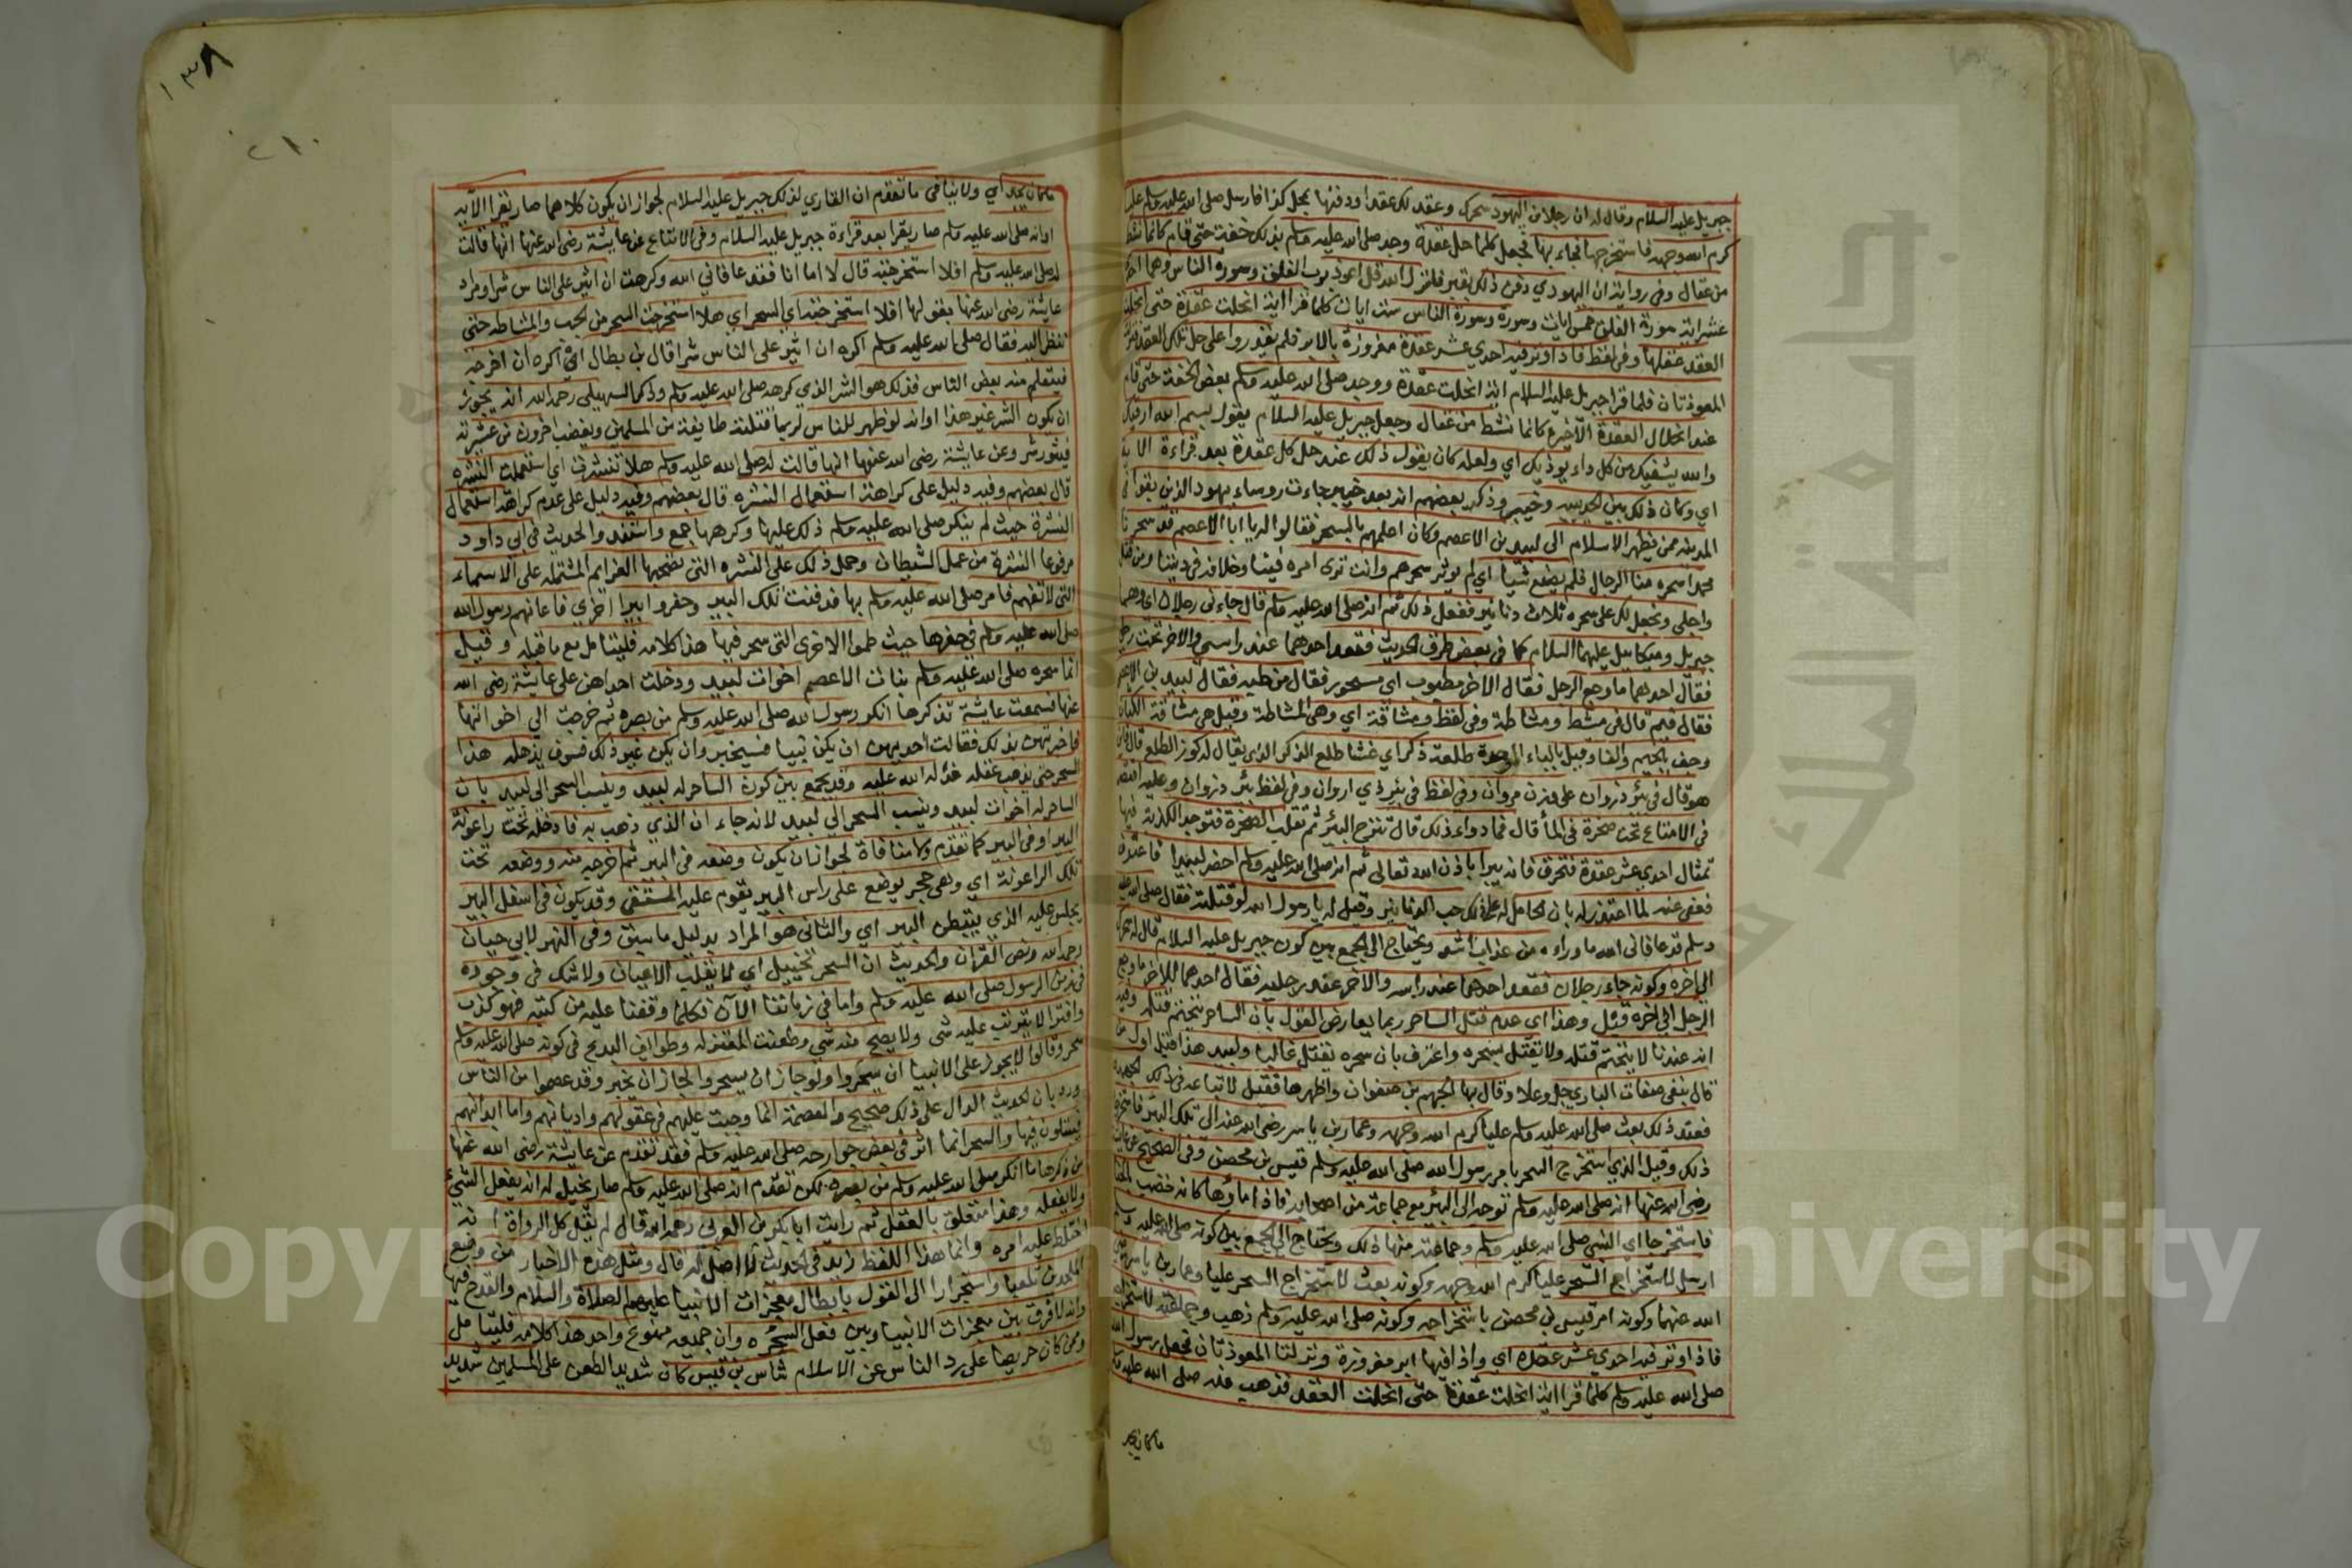 جبريل عليه السلام وقال له ان رجلا من اليهود سحرك وعقد لك عقدا ودفنها بمحل كذا فارسل صلى الله عليه وسلم عليا
كرم الله وجهه فاستخرجها فجاء بها فجعل كلما حل عقدة وجد صلى الله عليه وسلم بذلك خفة حتى قام كانما نشط
من عقال وفى رواية ان اليهودي دفن ذلك بقبر فانزل الله قل اعوذ برب الفلق وسورة الناس وهما احدى
عشر اية سورة الفلق خمس ايات وسورة الناس ست ايات كلما قرا اية انحلت عقدة حتى انحلت
العقد كلها وفى لفظ فاذا وتر فيه احدي عشر عقدة مغروزة بالابر فلم يقدروا على حل تلك العقد فنزلت
المعوذتان فلما قرا جبريل عليه السلام اية انحلت عقدة ووجد صلى الله عليه وسلم بعض الخفة حتى قام
عند انحلال العقدة الاخيرة كانما نشط من عقال وجعل جبريل عليه السلام يقول بسم الله ارقيك
والله يشفيك من كل داء يوذيك اي ولعله كان يقول ذلك عند حل كل عقدة بعد قراءة الاية
اي وكان ذلك بين الحديبيه وخيبر وذكر بعضهم انه بعد خيبر جاءت روساء يهود الذين بقوا فى
المدينه ممن يظهر الاسلام الى لبيد بن الاعصم وكان اعلمهم بالسحر فقالوا له يا ابا الاعصم قد سحرنا
محمدا سحره منا الرجال فلم يصنع شيا اي لم يوثر سحرهم وانت ترى امره فينا وخلافه فى ديننا ومن قتل
واجلى ونجعل لك على سحره ثلاث دنانير ففعل ذلك ثم انه صلى الله عليه وسلم قال جاءنى رجلان اي وهما
جبريل وميكاييل عليهما السلام كما فى بعض طرق الحديث فقعد احدهما عند راسي والاخر تحت رجلي
فقال احدهما ما وجع الرجل فقال الاخر مطبوب اي مسحور فقال من طبه فقال لبيد بن الاعصم
فقال فيم قال فى مشط ومشاطة وفى لفظ ومشاقة اي وهى المشاطة وقيل هى مشاقة الكتان
وجف بالجيم والفا وقيل بالباء الموحدة طلعة ذكر اي غشا طلع الذكر الذي يقال له كوز الطلع قال فاين
هو قال فى بئر ذروان على وزن مروان وفى لفظ فى بئر ذي اروان وفى لفظ بئر ذروان وعليه اقتصر
فى الامتاع تحت صخرة فى الماء قال فما دواء ذلك قال تنزح البئر ثم تقلب الصخرة فتوجد الكدية فيها
تمثال احدي عشر عقدة فتحرق فانه يبرا باذن الله تعالى ثم انه صلى الله عليه وسلم احضر لبيدا فاعترف
فعفى عنه لما اعتذر له بان الحامل له على ذلك حب الدنانير وقيل له يا رسول الله لو قتلته فقال صلى الله عليه
وسلم قد عافانى الله ما وراءه من عذاب الله اشد ويحتاج الى الجمع بين كون جبريل عليه السلام قال له سحرك
الى اخره وكونه جاءه رجلان فقعد احدهما عند راسه والاخر عند رجليه فقال احدهما للاخر ما وجع
الرجل الى اخره وقيل وهذا اى عدم قتل الساحر ربما يعارض القول بان الساحر يتحتم قتله وفيه
انه عندنا لا يتحتم قتله ولا يقتل بسحره واعترف بان سحره يقتل غالبا ولبيد هذا قيل اول من
قال بنفى صفات الباري جل وعلا وقال بها الجهم بن صفوان واظهرها فقيل لاتباعه فى ذلك الجهمية
فعند ذلك بعث صلى الله عليه وسلم عليا كرم الله وجهه وعمار بن ياسر رضى الله عنه الى تلك البئر فاستخرجا
ذلك وقيل الذي استخرج السحر بامر رسول الله صلى الله عليه وسلم قيس بن محصن وفى الصحيح عن عائشة
رضى الله عنها انه صلى الله عليه وسلم توجه الى البئر مع جماعة من اصحابه فاذا ماؤها كانه خضب بالحنا
فاستخرجا اي النبي صلى الله عليه وسلم وجماعته منها ذلك ويحتاج الى الجمع بين كونه صلى الله عليه وسلم
ارسل لاستخراج السحر عليا كرم الله وجهه وكونه بعث لاستخراج السحر عليا وعمار بن ياسر رضى
الله عنهما وكونه امر قيس بن محصن باستخراجه وكونه صلى الله عليه وسلم ذهب وجماعته لاستخراجه
فاذا وتر فيه احدي عشر عقده اي واذا فيها ابر مغروزة ونزلتا المعوذتان فجعل رسول الله
صلى الله عليه وسلم كلما قرا اية انحلت عقدة حتى انحلت العقد فذهب عنه صلى الله عليه وسلم
ما كان يجد
١٣٨
٢١٠
ما كان يجد اي ولا ينافى ما تقدم ان القاري لذلك جبريل عليه السلام لجواز ان يكون كلاهما صار يقرا الاية
او انه صلى الله عليه وسلم صار يقرا بعد قراءة جبريل عليه السلام وفى الامتاع عن عايشة رضى الله عنها انها قالت
له صلى الله عليه وسلم افلا استخرجته قال لا اما انا فقد عافاني الله وكرهت ان اثير على الناس شرا ومراد
عايشة رضى الله عنها بقولها افلا استخرجته اي السحر اي هلا استخرجت السحر من الجب والمشاطه حتى
ننظر اليه فقال صلى الله عليه وسلم اكره ان اثير على الناس شرا قال بن بطال اي اكره ان اخرجه
فيتعلم منه بعض الناس فذلك هو الشر الذي كرهه صلى الله عليه وسلم وذكر السهيلى رحمه الله انه يجوز
ان يكون الشر غير هذا او انه لو ظهر للناس لربما قتلته طايفة من المسلمين ويغضب اخرون من عشيرته
فيثور شر وعن عايشة رضى الله عنها انها قالت له صلى الله عليه وسلم هلا تنشرت اي استعملت النشره
قال بعضهم وفيه دليل على كراهة استعمال النشره قال بعضهم وفيه دليل على عدم كراهة استعمال
النشرة حيث لم ينكر صلى الله عليه وسلم ذلك عليها وكرهها جمع واستند والحديث فى ابى داود
مرفوعا النشرة من عمل الشيطان وحمل ذلك على النشره التى تصحبها العزايم المشتملة على الاسماء
التى لا تفهم فامر صلى الله عليه وسلم بها فدفنت تلك البير وحفروا بيرا اخري فاعانهم رسول الله
صلى الله عليه وسلم فى حفرها حيث طموا الاخرى التى سحر فيها هذا كلامه فليتامل مع ما قبله وقيل
انما سحره صلى الله عليه وسلم بنات الاعصم اخوات لبيد ودخلت احداهن على عايشة رضى الله
عنها فسمعت عايشة تذكرها انكر رسول الله صلى الله عليه وسلم من بصره ثم خرجت الى اخواتها
فاخبرتهن بذلك فقالت احديهن ان يكن نبيا فسيخبر وان يكن غير ذلك فسوف يذهله هذا
السحر حتى يذهب عقله فدله الله عليه وقد يجمع بين كون الساحر له لبيد وينسب السحر الى لبيد بان
الساحر له اخوات لبيد وينسب السحر الى لبيد لانه جاء ان الذي ذهب به فادخله تحت راعوثة
البير او فى البير كما تقدم ولا منافاة لجواز ان يكون وضعه فى البير ثم اخرجه منه ووضعه تحت
تلك الراعوثة اي وهى حجر يوضع على راس البير يقوم عليه المستقى وقد يكون فى اسفل البير
يجلس عليه الذي ينظف البير اي والثانى هو المراد بدليل ما سبق وفى النهر لابي حيان
رحمه الله ونص القران والحديث ان السحر تخييل اي لا يقلب الاعيان ولا شك فى وجوده
فى زمن الرسول صلى الله عليه وسلم واما فى زماننا الآن فكلما وقفنا عليه من كتبه فهو كذب
وافترا لا يترتب عليه شى ولا يصح منه شى وطعنت المعتزله وطوايف البدع فى كونه صلى الله عليه وسلم
سحر وقالوا لا يجوز على الانبيا ان يسحروا ولو جاز ان يسحروا لجاز ان يخبر وقد عصموا من الناس
ورد بان الحديث الدال على ذلك صحيح والعصمة انما وجبت عليهم فى عقولهم واديانهم واما ابدانهم
فيبتلون فيها والسحر انما اثر فى بعض جوارحه صلى الله عليه وسلم فقد تقدم عن عايشة رضى الله عنها
من ذكرها ما انكر صلى الله عليه وسلم من بصره لكن تقدم انه صلى الله عليه وسلم صار يخيل له انه يفعل الشيء
ولا يفعله وهذا متعلق بالعقل ثم رايت ابا بكر بن العربي رحمه الله قال لم يقل كل الرواة انه
اختلط عليه امره وانما هذا اللفظ زيد فى الحديث لا اصل له قال ومثل هذه الاخبار من وضع
الملحدين تلعبا واستجرارا الى القول بابطال معجزات الانبيا عليهم الصلاة والسلام والقدح فيها
وانه لا فرق بين معجزات الانبيا وبين فعل السحره وان جميعه من نوع واحد هذا كلامه فليتامل
وممن كان حريصا على رد الناس عن الاسلام شاس بن قيس كان شديد الطعن على المسلمين شديد